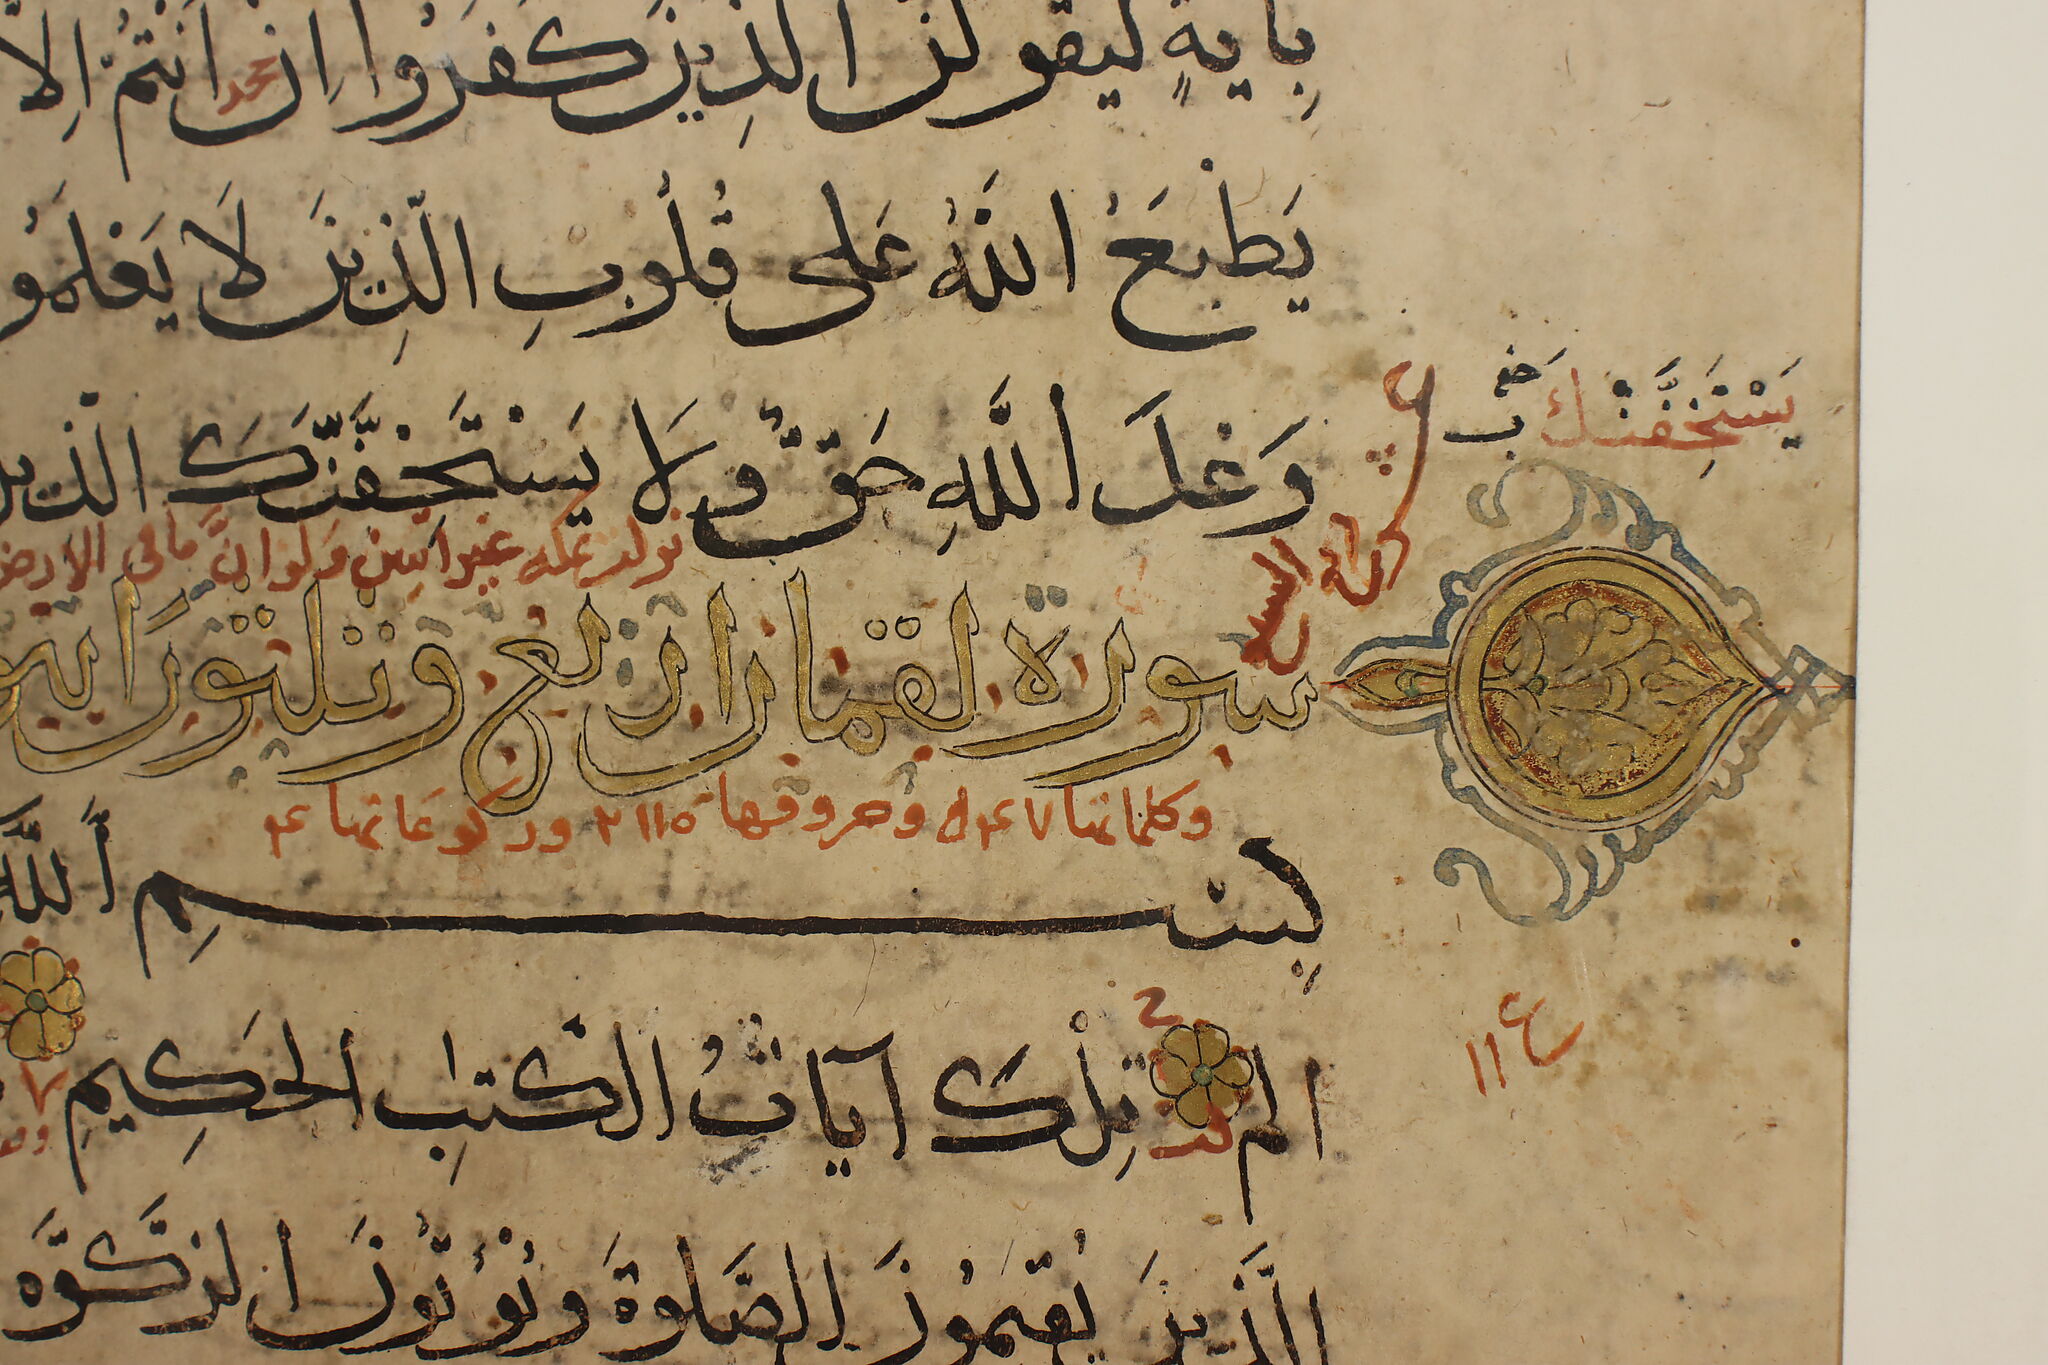 بِأَيَةٍ لَيَقُولَنَّ الَّذِينَ كَفَرُوا اِنْ اَنْتُمْ اِلَّا
يَطْبَعُ اللَّهُ عَلَى قُلُوبِ الَّذِينَ لَا يَعْلَمُو
يَسْتَخِفَّنْكَ
وَعْدَ اللَّهِ حَقٌّ وَلَا يَسْتَخِفَّنَّكَ الَّذِينَ
نزلت بمكه غير آيتين ولو انَّ ما فى الارض
سورة لقمان اربع وثلثون اية
وكلماتها ٧ وحروفها ٢١١٥ وركوعاتها ۴
بِسْمِ اللَّهِ
الم تِلْكَ آيَاتُ الْكِتٰبِ الْحَكِيمِ
١١ ع
الَّذِينَ يُقِيمُونَ الصَّلٰوةَ وَيُؤْتُونَ الزَّكٰوةَ